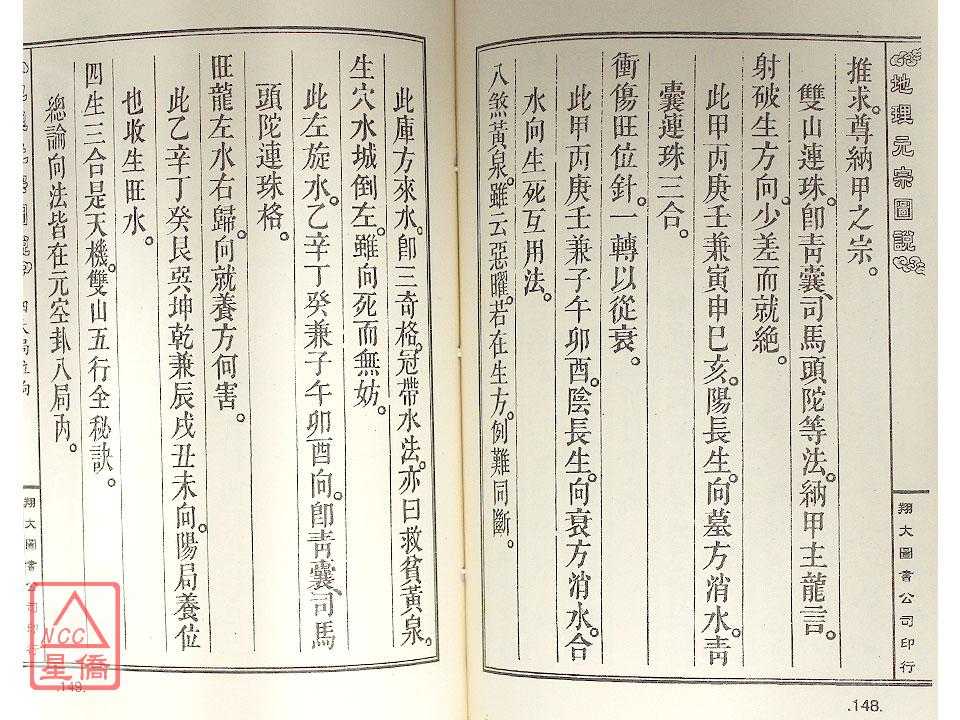 地理元宗圖說
翔大圖書公司印行
推求。尊納甲之宗。
雙山連珠。卽靑囊、司馬頭陀等法。納甲主龍言。
射破生方向。少差而就絕。
此甲丙庚壬兼寅申巳亥。陽長生。向墓方消水。靑
囊連珠三合。
衝傷旺位針。一轉以從衰。
此甲丙庚壬兼子午卯酉。陰長生。向衰方消水。合
水向生死互用法。
八煞黃泉。雖云惡曜。若在生方。例難同斷。
.148.
此庫方來水。卽三奇格。冠帶水法。亦曰救貧黃泉。
生穴水城倒左。雖向死而無妨。
此左旋水。乙辛丁癸兼子午卯酉向。卽靑囊、司馬
頭陀連珠格。
旺龍左水右歸。向就養方何害。
此乙辛丁癸艮巽坤乾兼辰戌丑未向。陽局養位
也收生旺水。
四生三合是天機。雙山五行全秘訣。
總論向法皆在元空卦八局內。
翔大圖書公司印行
.149.
NCC
星僑